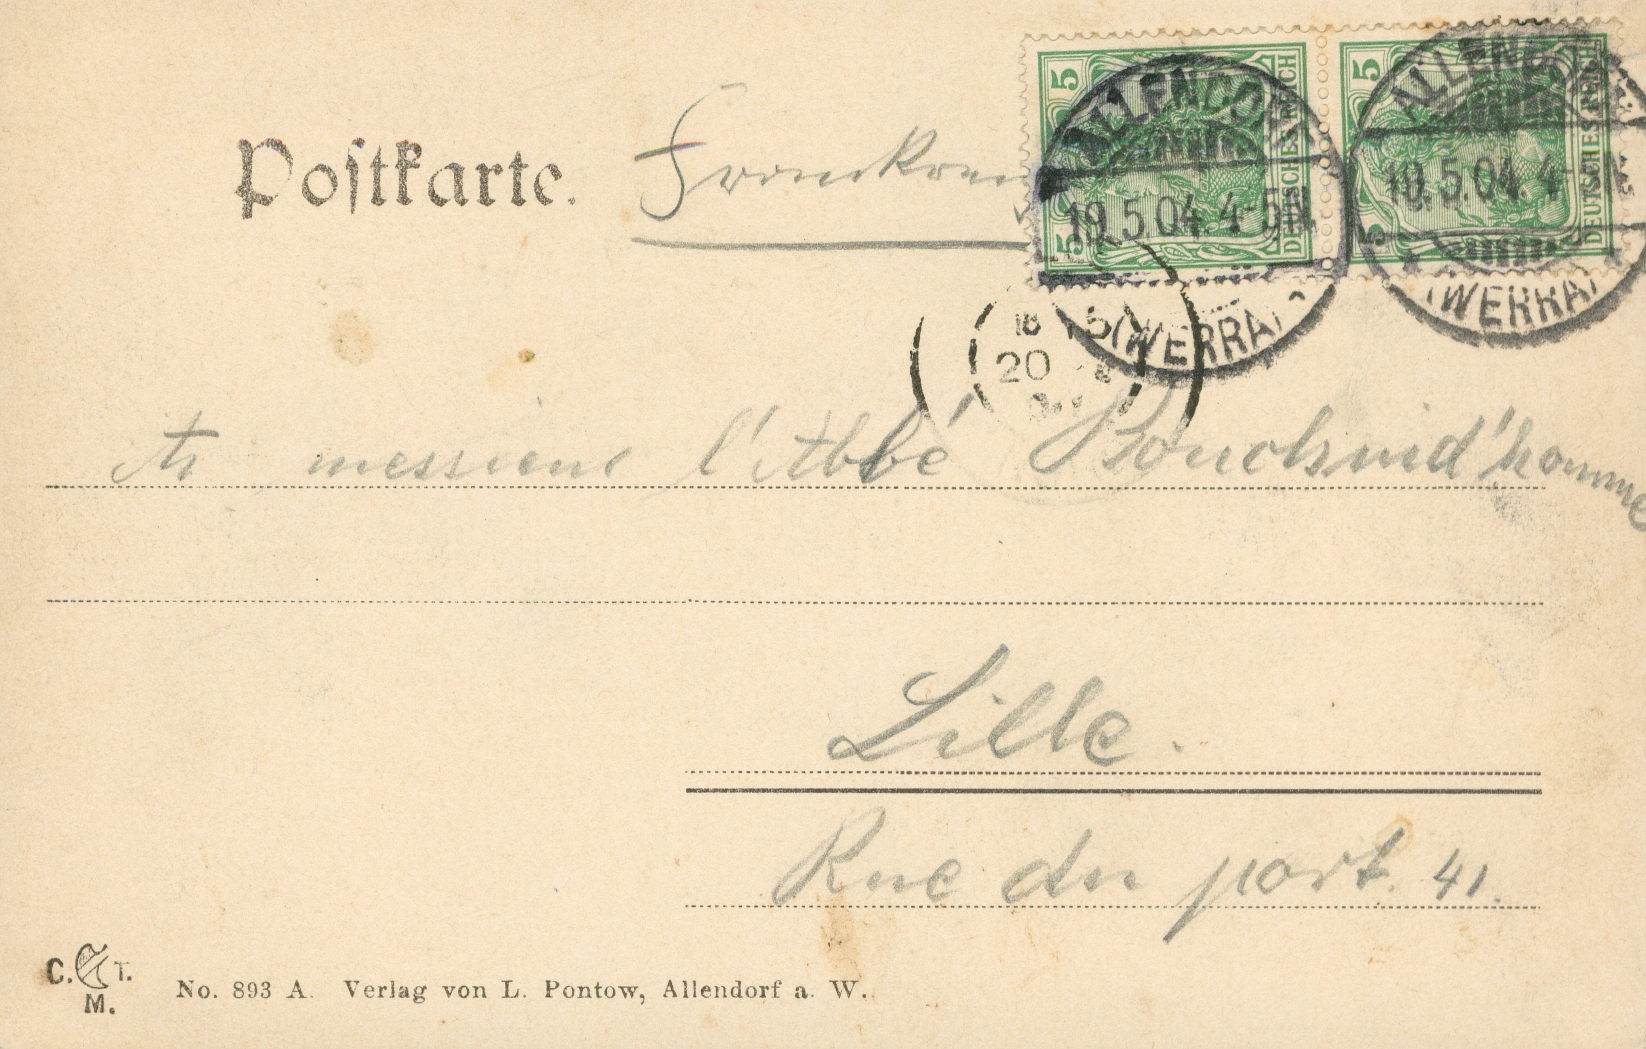 5 DEUTSCHES REICH 5
5 DEUTSCHES REICH 5
ALLENDORF
19.5.04. 4-5N.
(WERRA)
ALLENDORF
19.5.04. 4-5N.
(WERRA)
Postkarte.
Frankreich
18
20
A messieur l'Abbé Bouchnid'homme
Lille.
Rue du port. 41.
C. T.
M.
No. 893 A. Verlag von L. Pontow, Allendorf a. W.